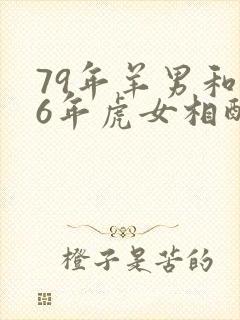 79年羊男和
6年虎女相配
橙子是苦的